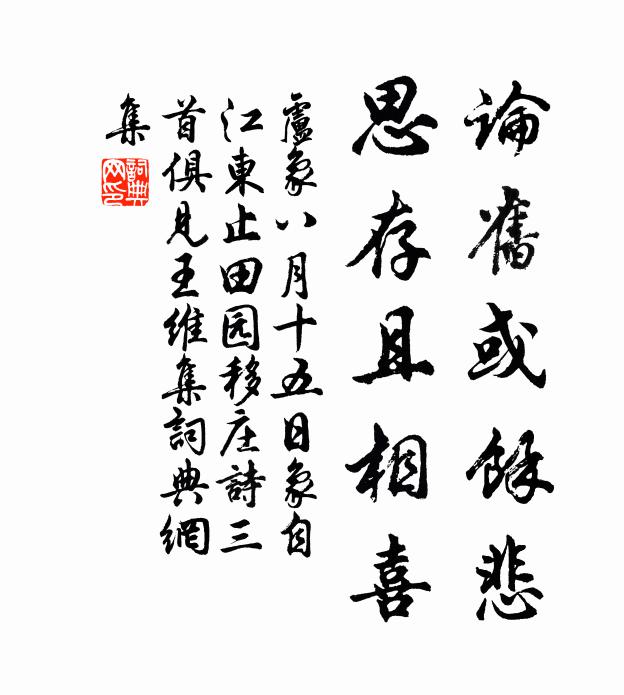 論舊或餘悲
思存且相喜
盧象八月十五日象自
江東止田园移庄詩三
首俱見王維集詞典網
集
詞典网印